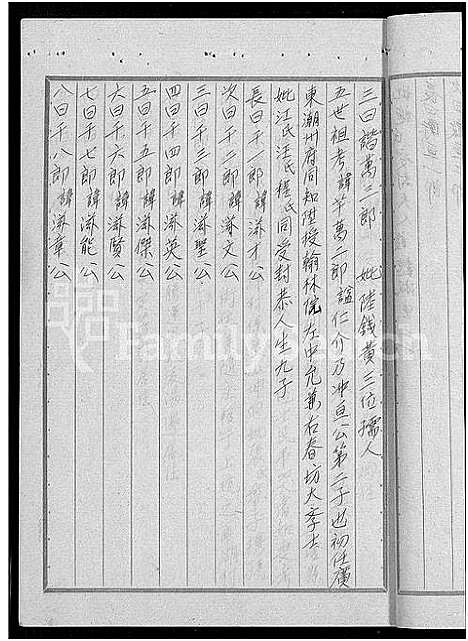 三曰諧萬三郎 妣陸錢黃三位孺人
五世祖考諱芋萬二郎謚仁介乃冲亘公第二子也初任廣
東潮州府同知陞授翰林院左中允兼右春坊大学士
妣江氏汪氏程氏同受封恭人生九子
長曰千一郎諱滋才公
次曰千二郎諱滋文公
三曰千三郎諱滋聖公
四曰千四郎諱滋英公
五曰千五郎諱滋傑公
六曰千六郎諱滋賢公
七曰千七郎諱滋能公
八曰千八郎諱滋章公